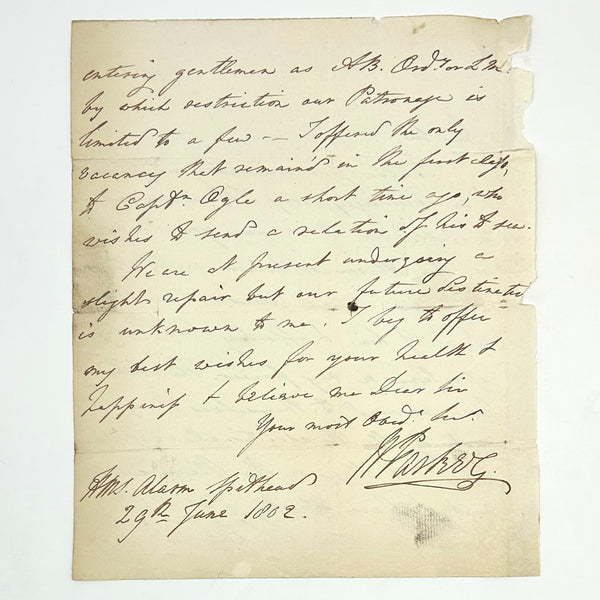 entering gentlemen as AB. Ordy. or L M.
by which restriction our Patronage is
limited to a few — I offered the only
vacancy that remain'd in the first class,
to Captn. Ogle a short time ago, who
wishes to send a relation of his to sea.
We are at present undergoing a
slight repair but our future destinatn
is unknown to me. I beg to offer
my best wishes for your health &
happiness & believe me Dear Sir
Your most Obedt. Sert.
Parker
HMS. Alarm Spithead
29th June 1802.